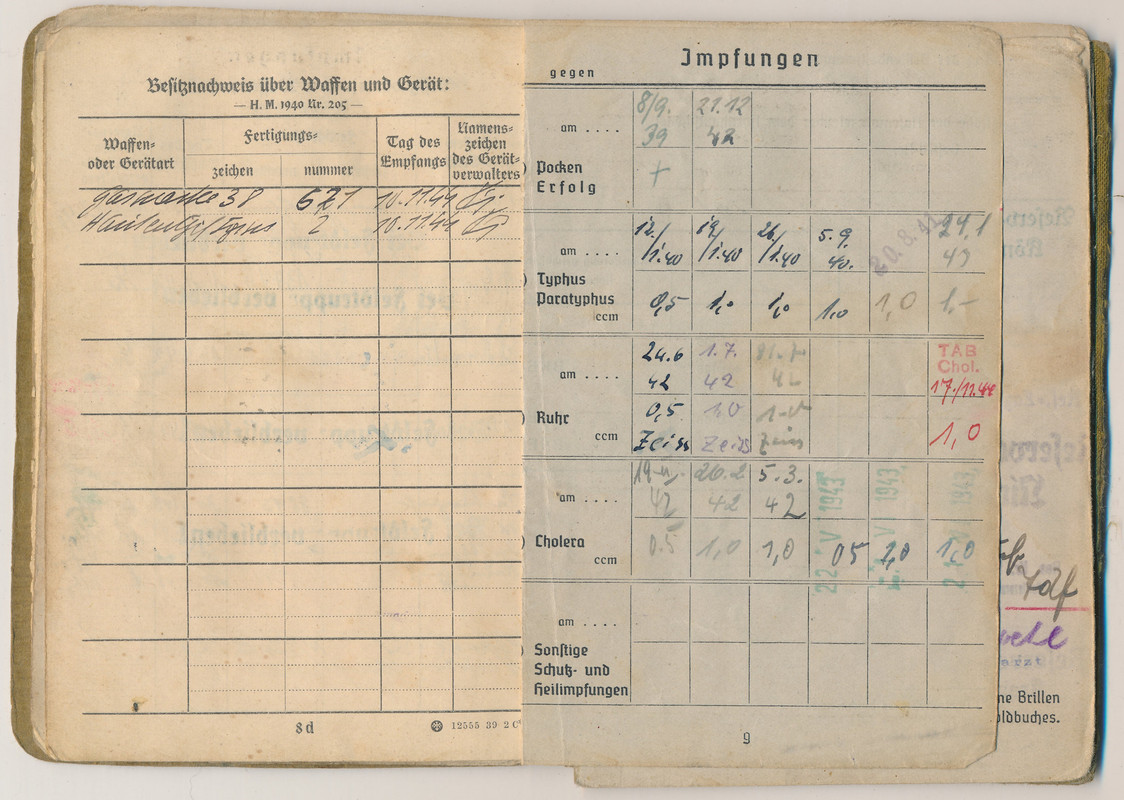 Besitznachweis über Waffen und Gerät:
— H. M. 1940 Nr. 205 —
Waffen-
oder Gerätart
Fertigungs-
zeichen
nummer
Tag des
Empfangs
Namens-
zeichen
des Gerät-
verwalters
Gasmaske 38 671 10.11.44
2 10.11.44
8d
12555 39 2 C
Impfungen
gegen
am ....
8/9. 21.12
39 42
Pocken
Erfolg
+
am ....
12./ 19./ 26./ 5.9. 20.8.41 24,1
1.40 1.40 1.40 40. 43
Typhus
Paratyphus
ccm
0,5 1,0 1,0 1,0 1,0 1.-
am ....
24.6 1.7.
42 42 42
TAB
Chol.
17./11.44
Ruhr
ccm
0,5 1.0
Zeiss Zeiss Zeiss
1,0
am ....
26.2 5.3.
42 42 42
22. V 1943 V 1943 1943
Cholera
ccm
0.5 1,0 1,0 05 1,0
am ....
Sonstige
Schutz- und
Heilimpfungen
9
arzt
ne Brillen
oldbuches.